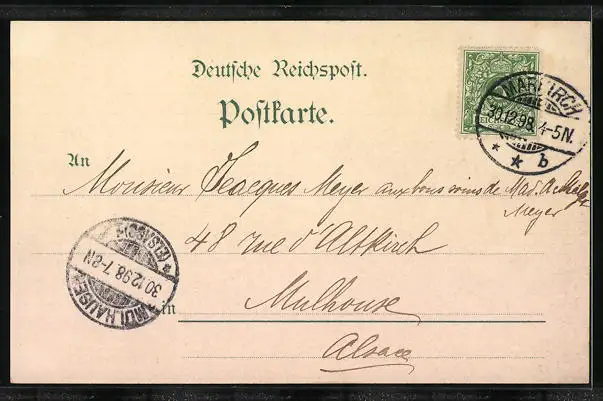 Deutsche Reichspost.
Postkarte.
MARKIRCH
30.12.98. 4-5N.
* * b
An
Monsieur Jacques Meyer aux bons soins de Mad. A.
Meyer
48 rue d'Altkirch
in Mulhouse
Alsace
MÜLHAUSEN (ELSASS)
30.12.98. 7-8N